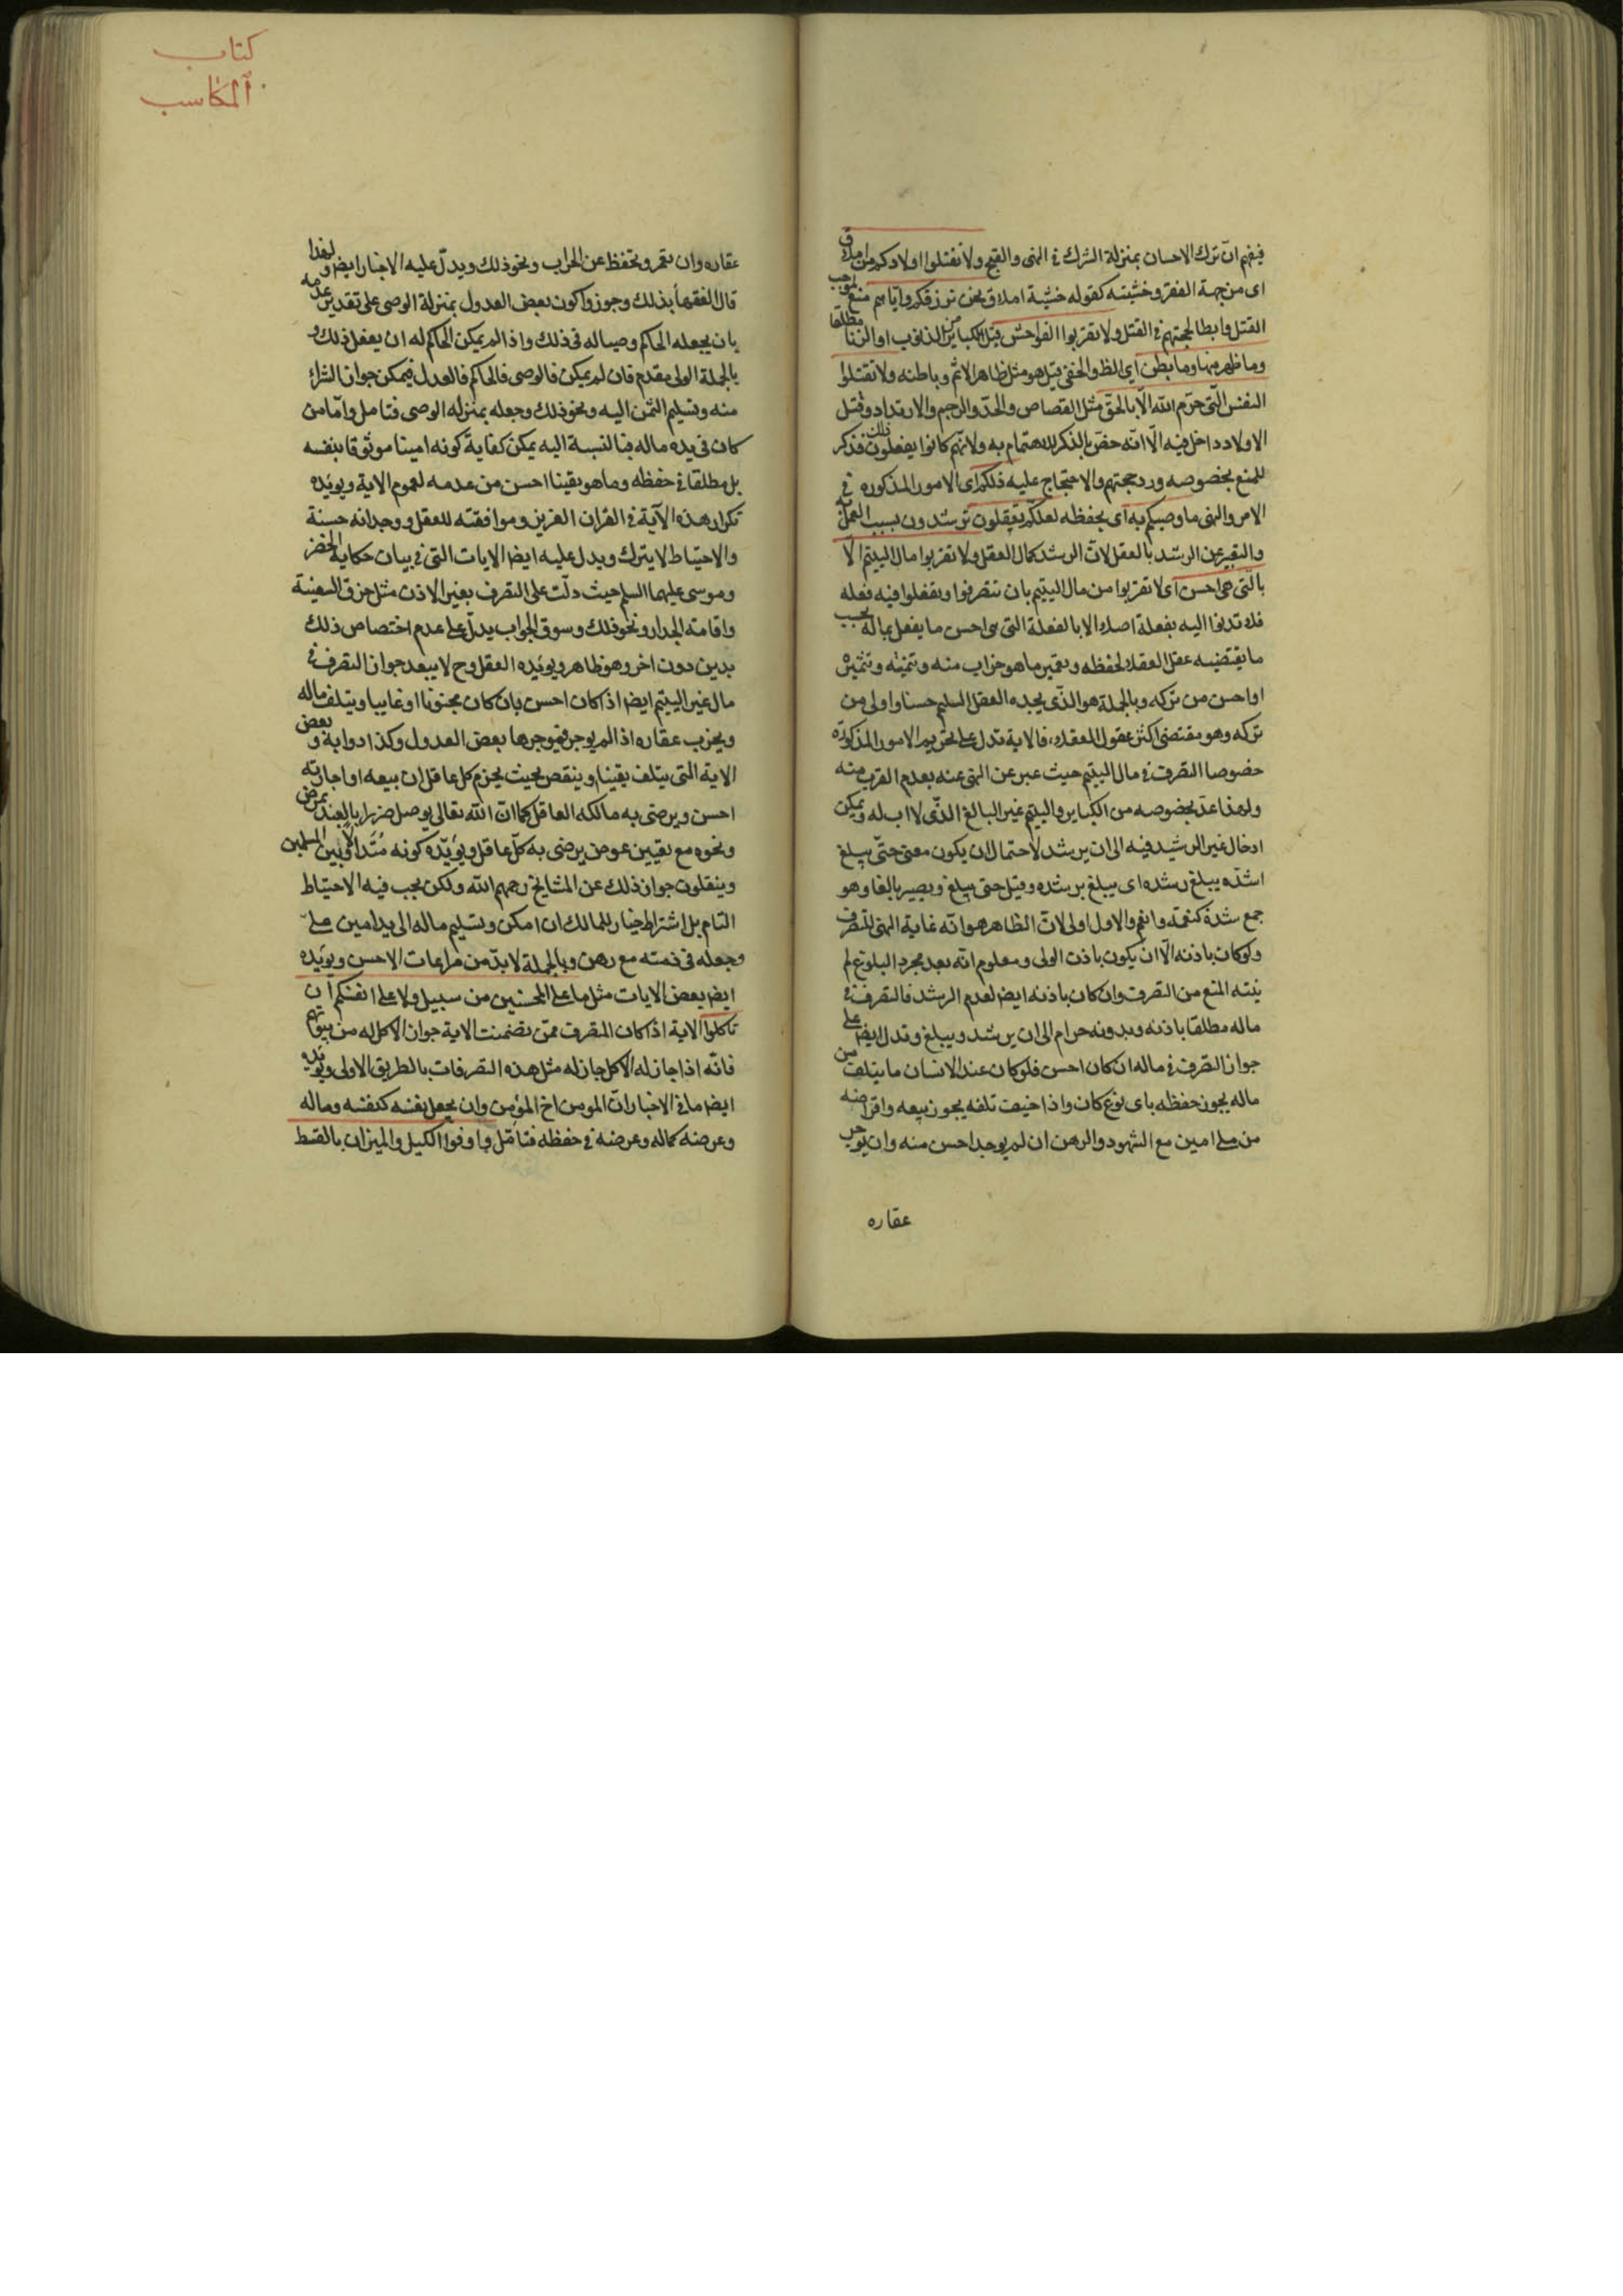 فيفهم ان ترك الاحسان بمنزلة الشرك في النهى والقبح ولا تقتلوا اولادكم من املاق
اى من جهة الفقر وخشيته كقوله خشية املاق نحن نرزقكم واياهم منع لموجب
القتل وابطال لحجتهم في القتل ولا تقربوا الفواحش قيل الكباير من الذنوب او الزنا مطلقا
وما ظهر منها وما بطن اى الظ والخفى قيل هو مثل ظاهر الاثم وباطنه ولا تقتلوا
النفس الّتى حرّم الله الّا بالحق مثل القصاص والحدّ والرجم والارتداد وقتل
الاولاد داخل فيه الّا انّه خصّ بالذكر للاهتمام به ولانّهم كانوا يفعلون ذلك فذكر
للمنع بخصوصه ورد حجتهم والاحتجاج عليه ذلكم اى الامور المذكوره في
الامر والنهى ما وصيكم به اى بحفظه لعلكم تعقلون ترشدون بسبب العمل به
والتعبير عن الرشد بالعقل لانّ الرشد كمال العقل ولا تقربوا مال اليتيم الّا
بالّتى هى احسن اى لا تقربوا من مال اليتيم بان تتصرفوا وتفعلوا فيه فعله
فلا تدنوا اليه بفعلة اصلا الا بالفعلة التى هى احسن ما يفعل بماله بحسب
ما يقتضيه عقل العقلاء لحفظه وتعمير ما هو خراب منه وتنميته وتثميره
او احسن من تركه وبالجملة هو الذّى يجده العقل السليم حسنا واولى من
تركه وهو مقتضى اكثر عقول العقلاء، فالاية تدل على تحريم الامور المذكورة
خصوصا التصرف في مال اليتيم حيث عبر عن النهى عنه بعدم القرب منه
ولهذا عدّ بخصوصه من الكباير واليتيم غير البالغ الذّى لا اب له ويمكن
ادخال غير الرشيد فيه الى ان يرشد لاحتمال ان يكون معنى حتّى يبلغ
اشدّه يبلغ رشده اى يبلغ برشده وقيل حتى يبلغ ويصير بالغا وهو
جمع شدة كنعمة وانعم والاول اولى لانّ الظاهر هو انّه غاية النهى للتصرف
ولو كان باذنه الّا ان يكون باذن الولى ومعلوم انّه بعد مجرد البلوغ لم
ينته المنع من التصرف وان كان باذنه ايضا لعدم الرشد فالتصرف في
ماله مطلقا باذنه وبدونه حرام الى ان يرشد ويبلغ وتدل ايضا على
جواز التصرف في ماله ان كان احسن فلو كان عند الانسان ما يتلف من
ماله يجوز حفظه باى نوع كان واذا خيف تلفه يجوز بيعه واقراضه
من ملى امين مع الشهود والرهن ان لم يوجد احسن منه وان يوجر
عقاره
كتاب
المكاسب
عقاره وان يعمر ويحفظ عن الخراب ونحو ذلك ويدلّ عليه الاخبار ايضا ولهذا
قال الفقهاء بذلك وجوزوا كون بعض العدول بمنزلة الوصى على تقدير عدمه
بان يجعله الحاكم وصيا له في ذلك واذا لم يمكن الحاكم له ان يفعل ذلك و
بالجملة الولى مقدم فان لم يمكن فالوصى فالحاكم فالعدل فيمكن جواز الشراء
منه وتسليم الثمن اليه ونحو ذلك وجعله بمنزله الوصى فتامل وامّا من
كان في يده ماله فبالنسبة اليه يمكن كفاية كونه امينا موثوقا بنفسه
بل مطلقا في حفظه وما هو يقينا احسن من عدمه لعموم الاية ويويّده
تكرار هذه الآية في القران العزيز وموافقته للعقل ووجدانه حسنة
والاحتياط لا يترك ويدل عليه ايضا الايات التى في بيان حكاية الخضر
وموسى عليهما السلم حيث دلّت على التصرف بغير الاذن مثل خرق السفينة
واقامته الجدار ونحو ذلك وسوق الجواب يدلّ على عدم اختصاص ذلك
بدين دون اخر وهو ظاهر ويويّده العقل وح لا يبعد جواز التصرف في
مال غير اليتيم ايضا اذا كان احسن بان كان مجنونا او غايبا ويتلف ماله
ويخرب عقاره اذا لم يوجر فيوجرها بعض العدول وكذا دوابه و بعض
الاية التى يتلف يقينا وينقص بحيث يجزم كل عاقل ان بيعه او اجارته
احسن ويرضى به مالكه العاقل كما انّ الله تعالى يوصل ضررا بالعبد بمرض
ونحوه مع تعيين عوض يرضى به كلّ عاقل ويؤيّده كونه مُتَداولا بين المسلمين
وينقلون جواز ذلك عن المشايخ رحمهم الله ولكن يجب فيه الاحتياط
التام بل اشتراط خيار للمالك ان امكن وتسليم ماله الى يد امين ملى
وجعله في ذمته مع رهن وبالجملة لا بدّ من مراعات الاحسن ويويّده
ايضا بعض الايات مثل ما على المحسنين من سبيل ولا على انفسكم ان
تاكلوا الاية اذا كان المتصرف ممّن تضمنت الاية جواز الاكل له من بيوتهم
فانّه اذا جاز له الاكل جاز له مثل هذه التصرفات بالطريق الاولى ويويّده
ايضا ما في الاخبار انّ المومن اخ المؤمن وان يجعل نفسه كنفسه وماله
وعرضه كماله وعرضه في حفظه فتامّل واوفوا الكيل والميزان بالقسط